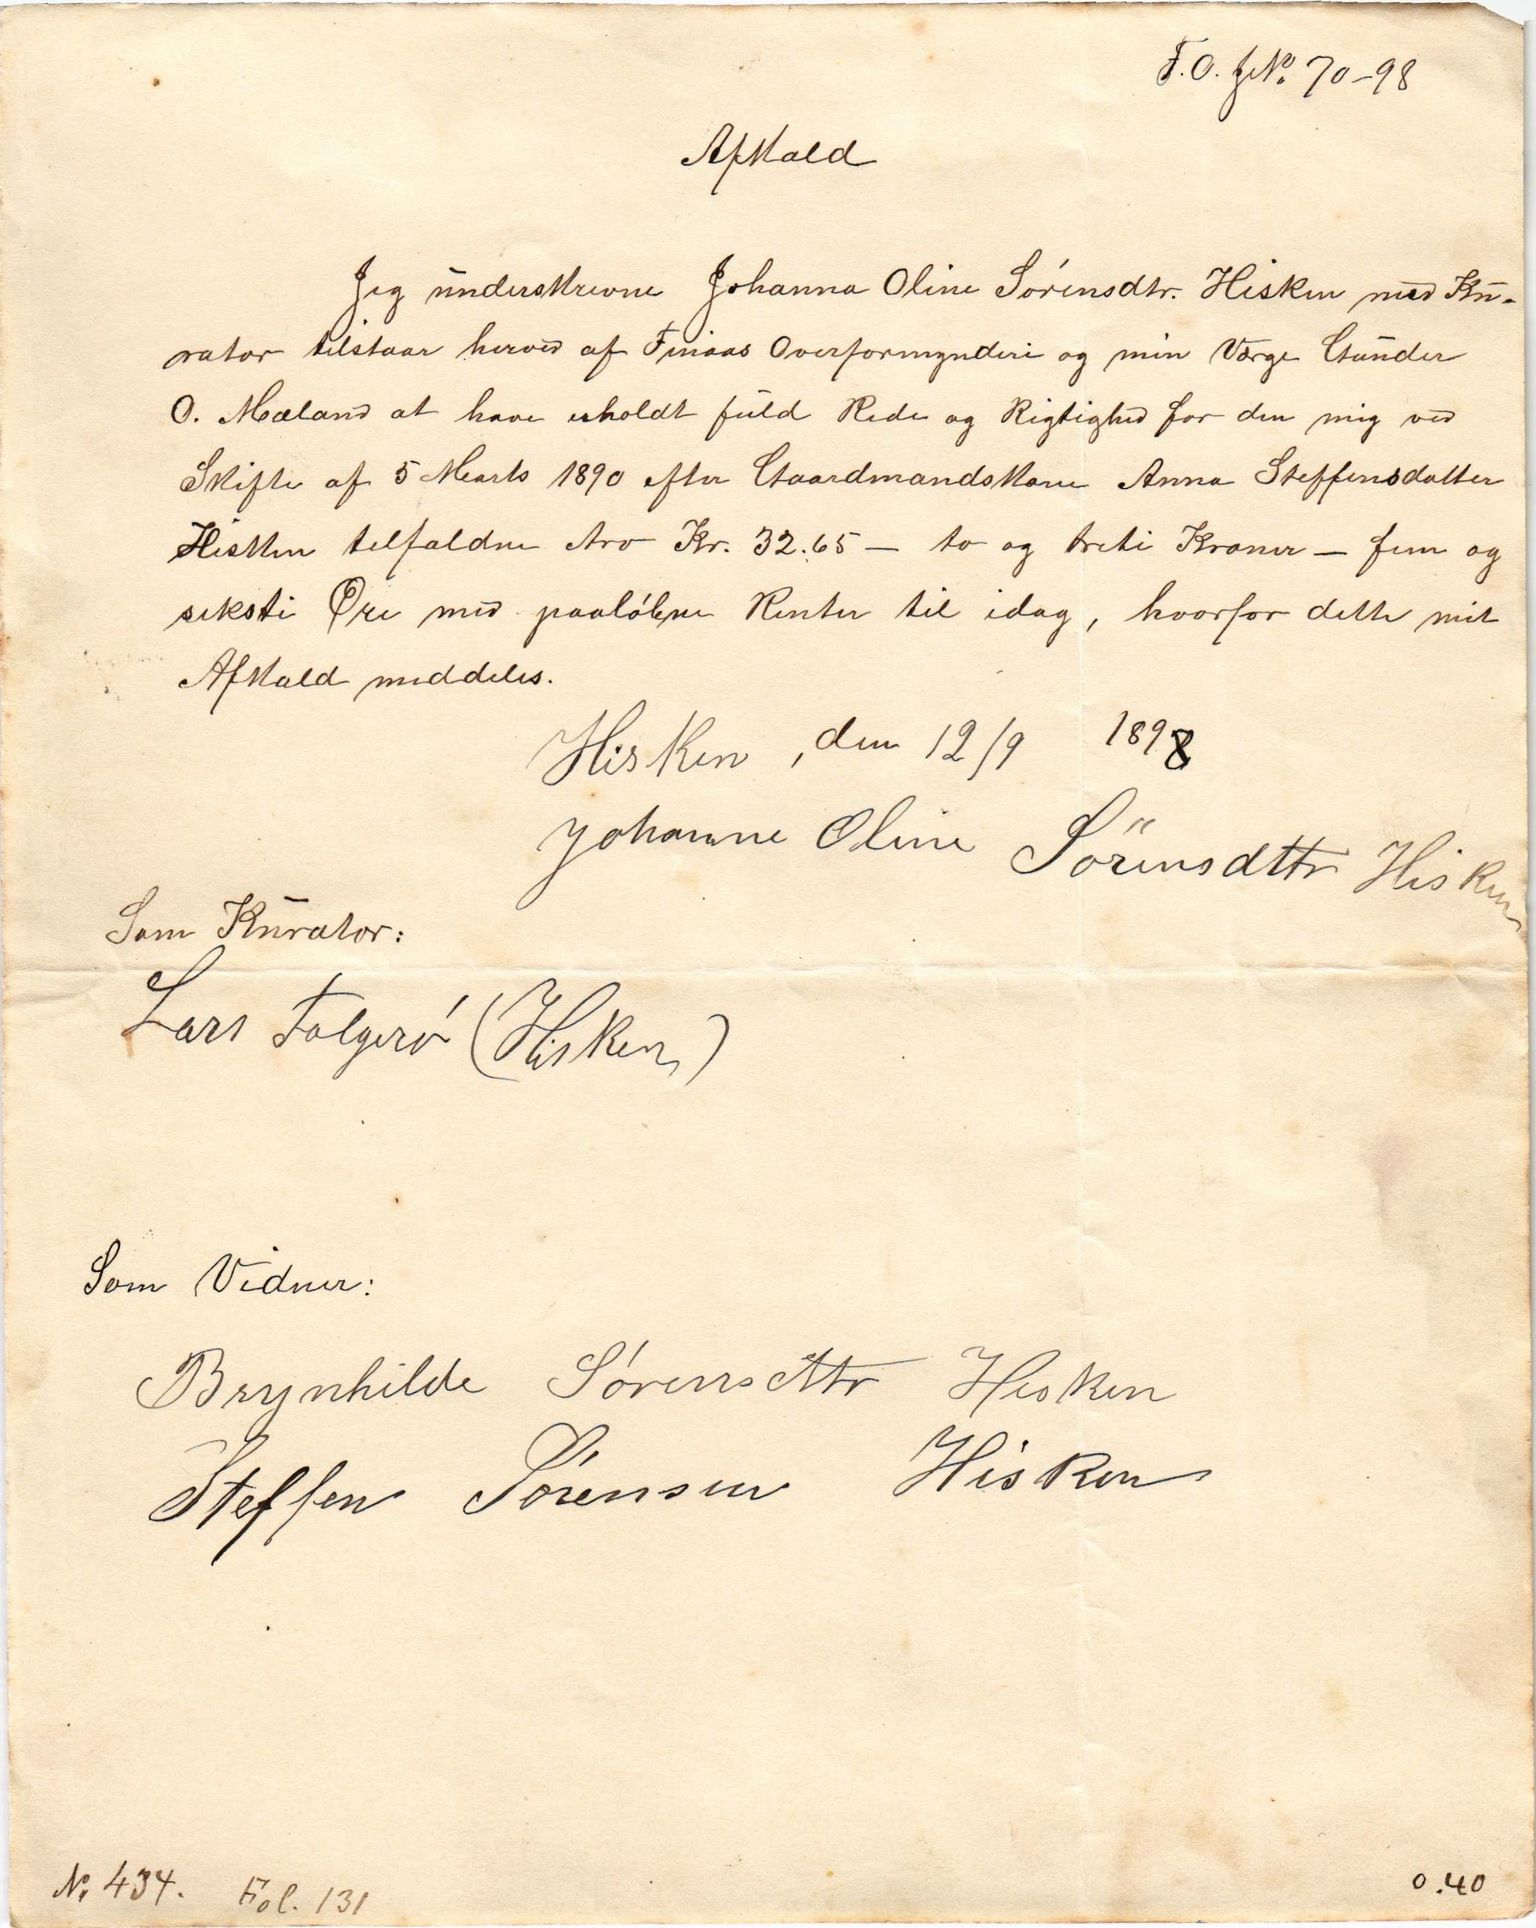 F.O. JNo. 70-98
Afkald
Jeg underskrevne Johanna Oline Sørensdtr. Hisken med Ku-
rator tilstaar herved af Finaas Overformynderi og min Værge Gunder
O. Mæland at have erholdt fuld Rede og Rigtighed for den mig ved
Skifte af 5 Marts 1890 efter Gaardmandskone Anna Steffensdatter
Hisken tilfaldne Arv Kr. 32.65 — to og treti Kroner — fem og
seksti Øre med paaløbne Renter til idag, hvorfor dette mit
Afkald meddeles.
Hisken, den 12/9 1898
Johanne Oline Sörensdttr Hisken
Som Kurator:
Lars Folgerø (Hisken)
Som Vidner:
Brynhilde Sørensdttr Hisken
Steffen Sørensen Hisken
No. 434. Fol. 131
0.40